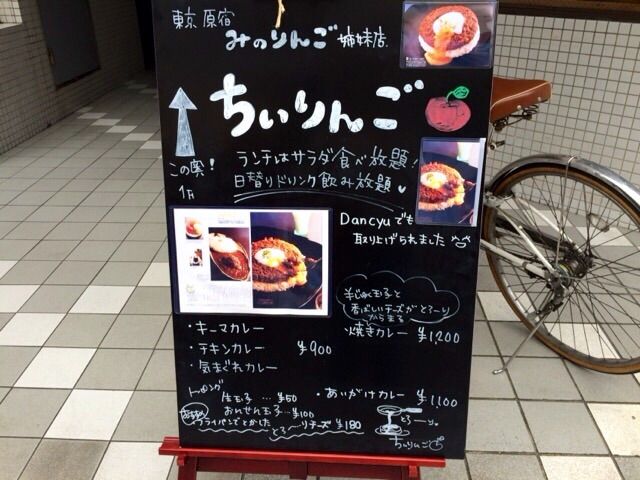 東京 原宿
みのりんご 姉妹店.
ちぃりんご
この奥!
1F
ランチはサラダ食べ放題!
日替りドリンク飲み放題
Dancyuでも
取り上げられました
半じゅく玉子と
香ばしいチーズがとろ〜り
からまる
・キーマカレー
・チキンカレー ¥900
・気まぐれカレー
・焼きカレー ¥1,200
・あいがけカレー ¥1,100
トッピング
生玉子…¥50
おんせん玉子…¥100
おすすめ
フライパンでとかした
とろ〜りチーズ ¥180
とろ〜り。
ちぃりんご